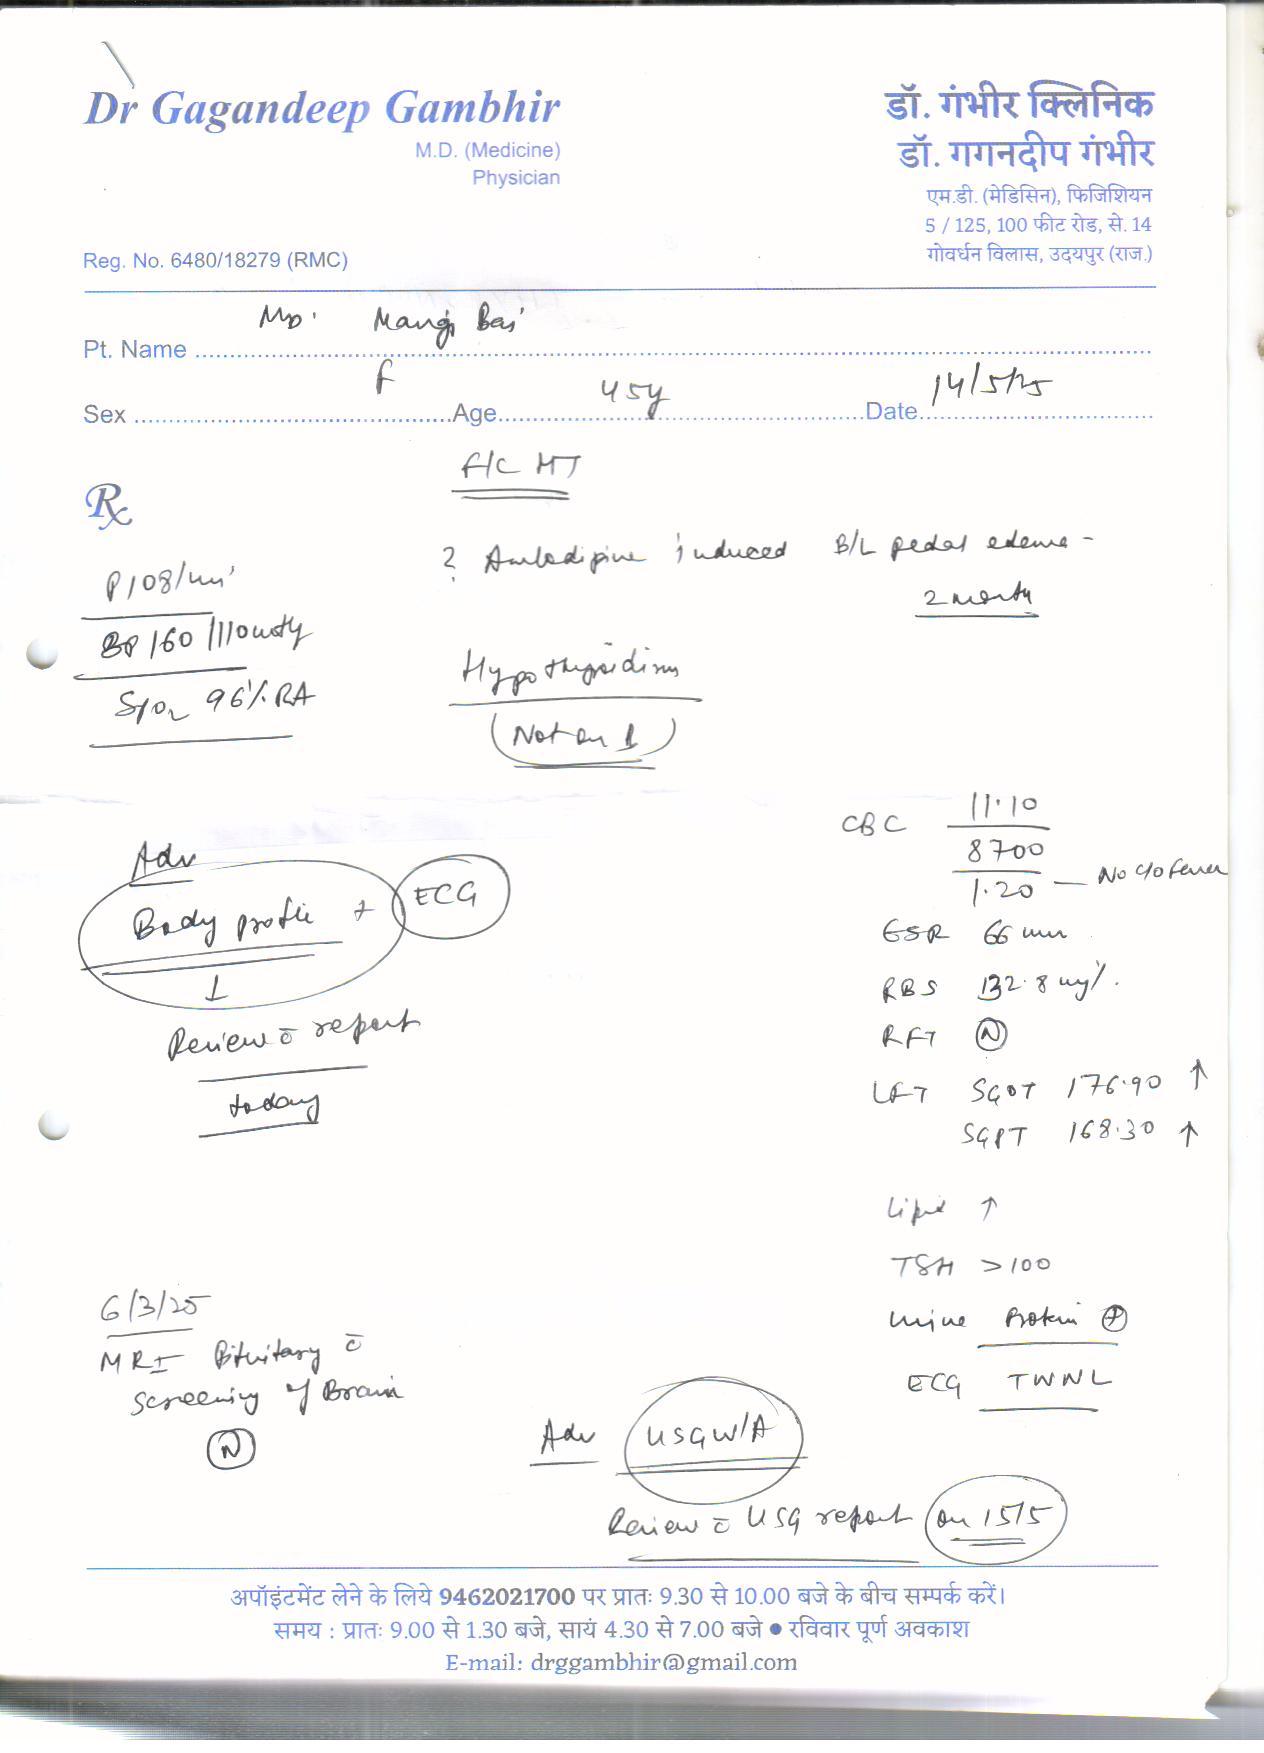 Dr Gagandeep Gambhir
M.D. (Medicine)
Physician
Reg. No. 6480/18279 (RMC)
डॉ. गंभीर क्लिनिक
डॉ. गगनदीप गंभीर
एम.डी. (मेडिसिन), फिजिशियन
5 / 125, 100 फीट रोड, से. 14
गोवर्धन विलास, उदयपुर (राज.)
Pt. Name Mangi Bai
Sex F Age 45y Date 14/5/25
F/C HT
Rx
? Amlodipine induced B/L pedal edema -
2 month
P 108/min
BP 160/110 mmHg
SpO2 96% RA
Hypothyroidism
(Not on T)
CBC 11.10
8700
1.20 — No c/o fever
ESR 66 mm
RBS 132.8 mg%
RFT (N)
LFT SGOT 176.90 ↑
SGPT 168.30 ↑
Lipid ↑
TSH >100
Urine Protein (+)
ECG TWNL
Adv
Body profile + ECG
↓
Review c̄ report
today
6/3/25
MRI Pituitary c̄
screening of Brain
(N)
Adv USG W/A
Review c̄ USG report on 15/5
अपॉइंटमेंट लेने के लिये 9462021700 पर प्रातः 9.30 से 10.00 बजे के बीच सम्पर्क करें।
समय : प्रातः 9.00 से 1.30 बजे, सायं 4.30 से 7.00 बजे ● रविवार पूर्ण अवकाश
E-mail: drggambhir@gmail.com